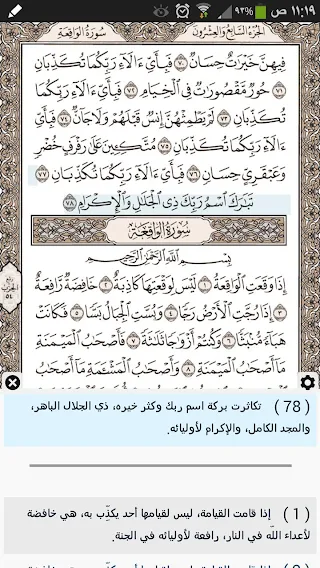 ١١:١٩ ص
٩٣%
الجزء السابع والعشرون
سورة الواقعة
فِيهِنَّ خَيْرَٰتٌ حِسَانٌ ٧٠ فَبِأَيِّ ءَالَآءِ رَبِّكُمَا تُكَذِّبَانِ
٧١ حُورٌ مَّقْصُورَٰتٌ فِي ٱلْخِيَامِ ٧٢ فَبِأَيِّ ءَالَآءِ رَبِّكُمَا
تُكَذِّبَانِ ٧٣ لَمْ يَطْمِثْهُنَّ إِنسٌ قَبْلَهُمْ وَلَا جَآنٌّ ٧٤ فَبِأَيِّ
ءَالَآءِ رَبِّكُمَا تُكَذِّبَانِ ٧٥ مُتَّكِـِٔينَ عَلَىٰ رَفْرَفٍ خُضْرٍ
وَعَبْقَرِيٍّ حِسَانٍ ٧٦ فَبِأَيِّ ءَالَآءِ رَبِّكُمَا تُكَذِّبَانِ ٧٧
تَبَٰرَكَ ٱسْمُ رَبِّكَ ذِي ٱلْجَلَٰلِ وَٱلْإِكْرَامِ ٧٨
سُورَةُ الواقِعَةِ
بِسْمِ ٱللَّهِ ٱلرَّحْمَٰنِ ٱلرَّحِيمِ
إِذَا وَقَعَتِ ٱلْوَاقِعَةُ ١ لَيْسَ لِوَقْعَتِهَا كَاذِبَةٌ ٢ خَافِضَةٌ رَّافِعَةٌ
٣ إِذَا رُجَّتِ ٱلْأَرْضُ رَجًّا ٤ وَبُسَّتِ ٱلْجِبَالُ بَسًّا ٥ فَكَانَتْ
هَبَآءً مُّنۢبَثًّا ٦ وَكُنتُمْ أَزْوَٰجًا ثَلَٰثَةً ٧ فَأَصْحَٰبُ ٱلْمَيْمَنَةِ
مَآ أَصْحَٰبُ ٱلْمَيْمَنَةِ ٨ وَأَصْحَٰبُ ٱلْمَشْـَٔمَةِ مَآ أَصْحَٰبُ
(78) تكاثرت بركة اسم ربك وكثر خيره، ذي الجلال الباهر،
والمجد الكامل، والإكرام لأوليائه.
(1) إذا قامت القيامة، ليس لقيامها أحد يكذِّب به، هي خافضة
لأعداء الله في النار، رافعة لأوليائه في الجنة.